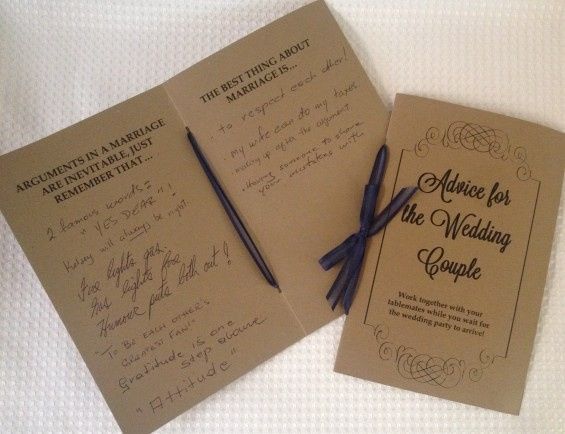 ARGUMENTS IN A MARRIAGE
ARE INEVITABLE, JUST
REMEMBER THAT...
2 famous words:
"YES DEAR"!
Kelsey will always be right.
Fire lights gas
Gas lights fire
Humour puts both out!
"TO BE EACH OTHER'S
GREATEST FAN!"
Gratitude is one
step above
"Attitude"
THE BEST THING ABOUT
MARRIAGE IS...
to respect each other!
My wife can do my taxes.
making up after the argument
Having someone to share
your mistakes with
Advice for
the Wedding
Couple
Work together with your
tablemates while you wait for
the wedding party to arrive!